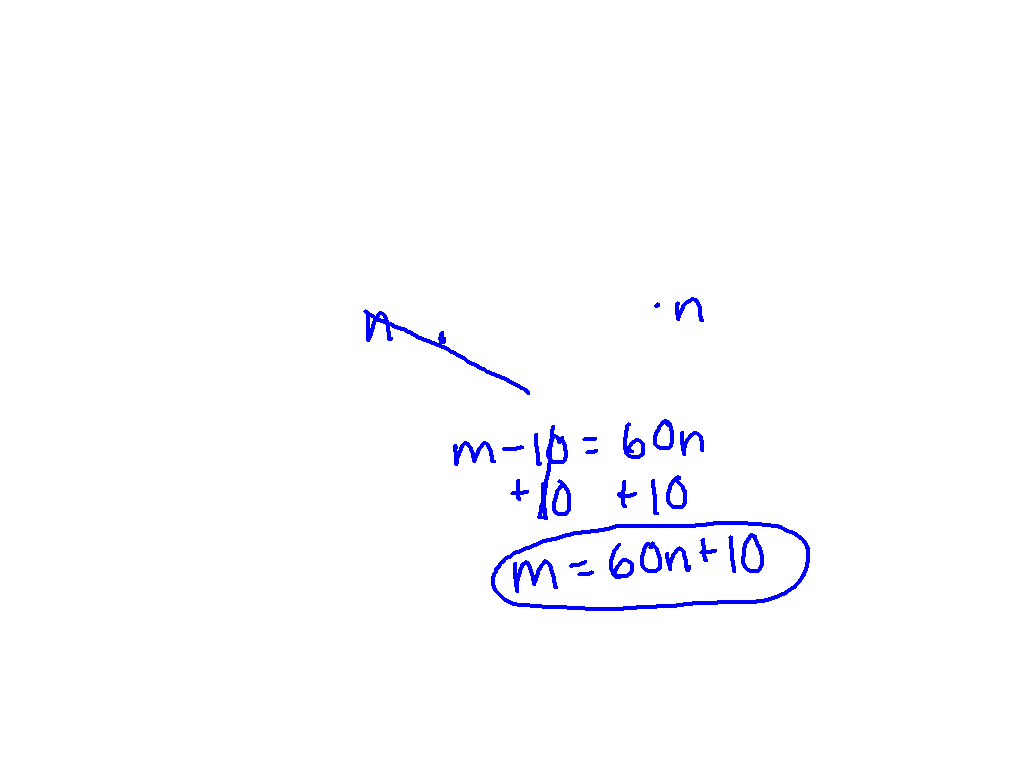 n · · n
m - 10 = 60n
+10 +10
m = 60n + 10